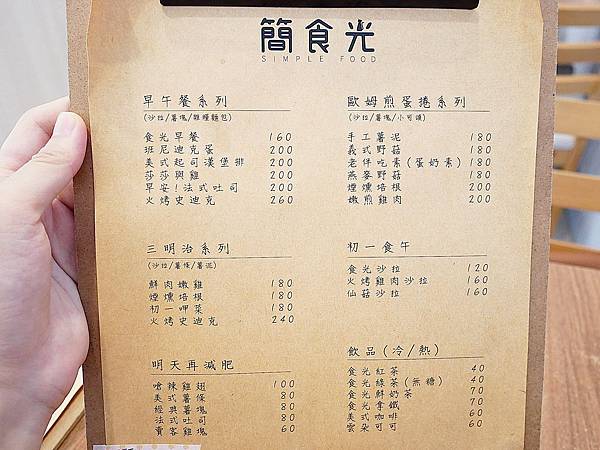 簡食光
SIMPLE FOOD
早午餐系列
(沙拉/薯塊/雜糧麵包)
食光早餐 160
班尼迪克蛋 200
美式起司漢堡排 200
莎莎與雞 200
早安!法式吐司 200
火烤史迪克 260
三明治系列
(沙拉/薯條/薯泥)
鮮肉嫩雞 180
煙燻培根 180
初一呷菜 180
火烤史迪克 240
明天再減肥
嗆辣雞翅 100
美式薯條 80
經典薯塊 80
法式吐司 80
賣客雞塊 60
歐姆煎蛋捲系列
(沙拉/薯塊/小可頌)
手工薯泥 180
義式野菇 180
老伴吃素(蛋奶素) 180
燕麥野菇 180
煙燻培根 200
嫩煎雞肉 200
初一食午
食光沙拉 120
火烤雞肉沙拉 160
仙菇沙拉 160
飲品(冷/熱)
食光紅茶 40
食光綠茶(無糖) 40
食光鮮奶茶 70
食光拿鐵 70
美式咖啡 60
雲朵可可 60